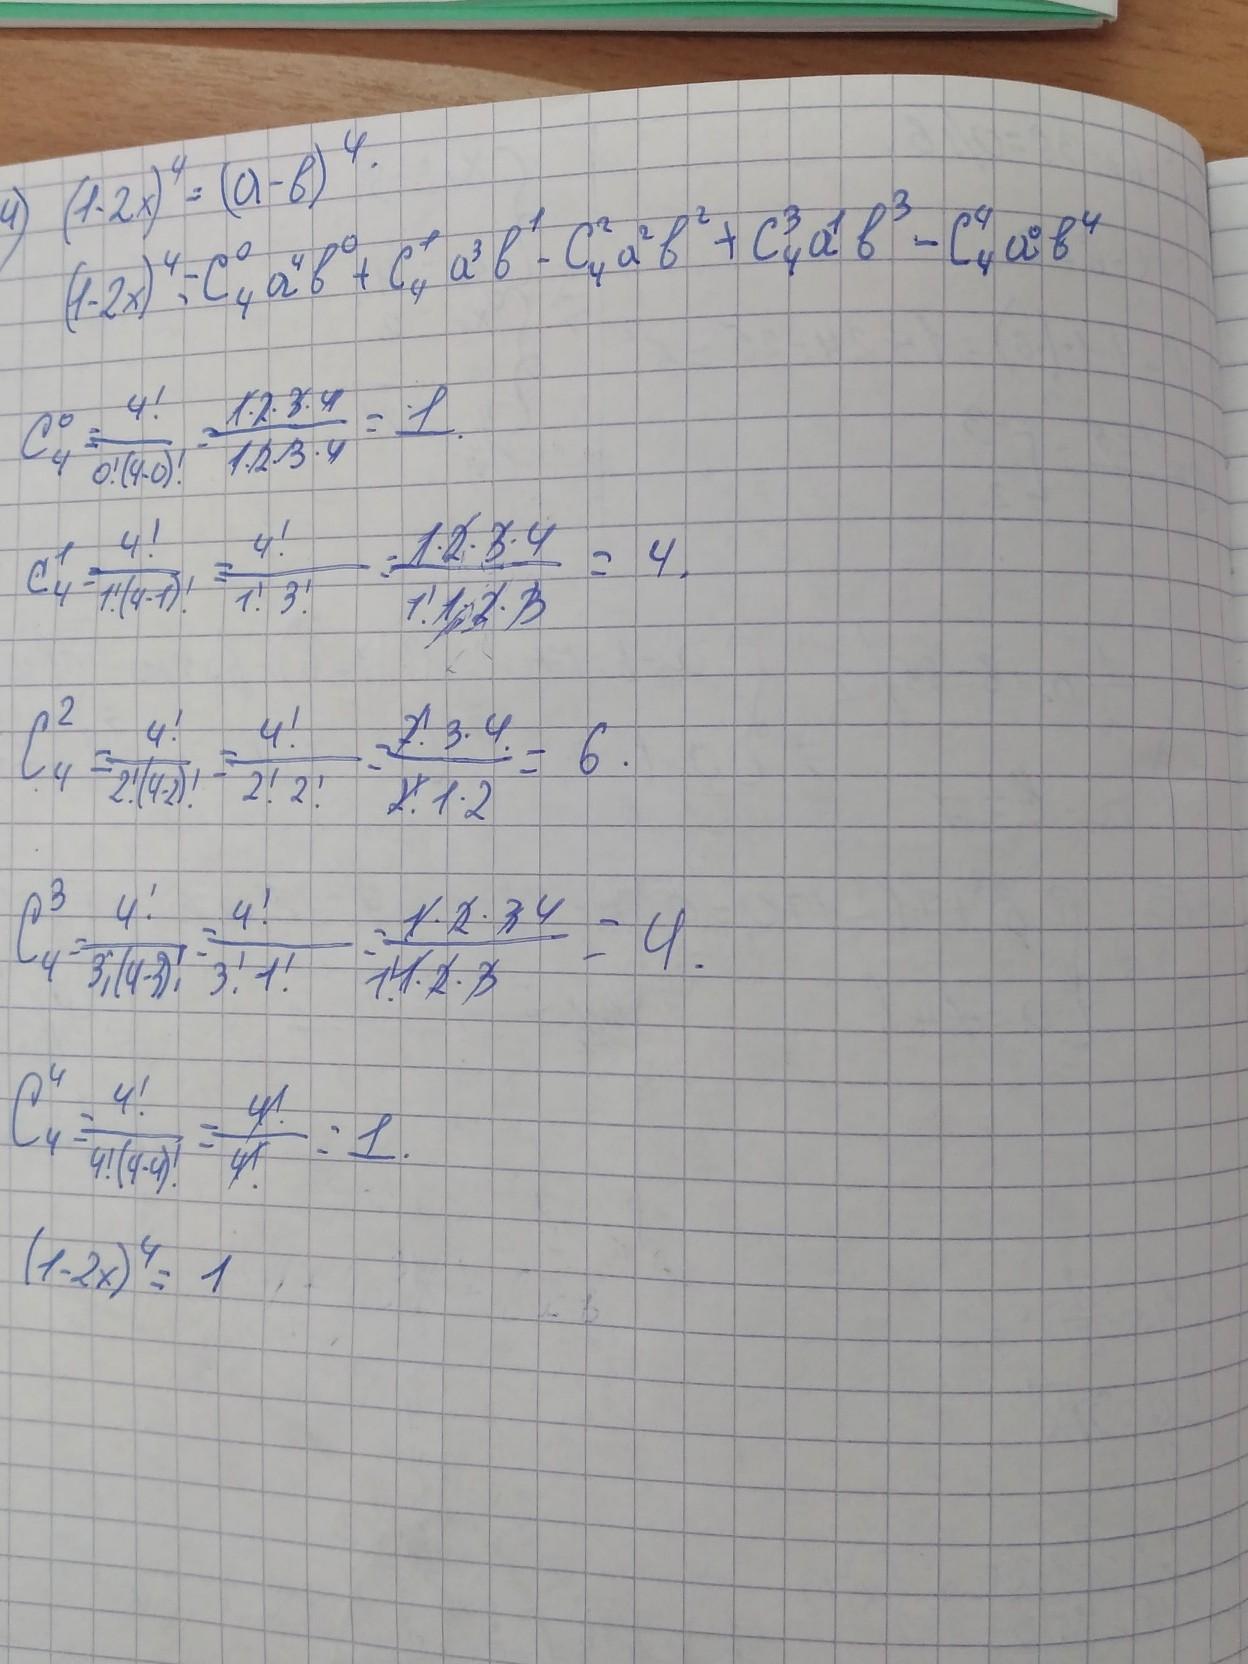 4) (1-2x)⁴ = (a-b)⁴.
(1-2x)⁴ = C₄⁰a⁴b⁰ + C₄¹a³b¹ - C₄²a²b² + C₄³a¹b³ - C₄⁴a⁰b⁴
C₄⁰ = 4!/0!(4-0)! = 1·2·3·4/1·2·3·4 = 1.
C₄¹ = 4!/1!(4-1)! = 4!/1! 3! = 1·2·3·4/1! 1·2·3 = 4.
C₄² = 4!/2!(4-2)! = 4!/2! 2! = 2! 3·4/2! 1·2 = 6.
C₄³ = 4!/3!(4-3)! = 4!/3! · 1! = 1·2·3 4/1! 1·2·3 = 4.
C₄⁴ = 4!/4!(4-4)! = 4!/4! = 1.
(1-2x)⁴ = 1